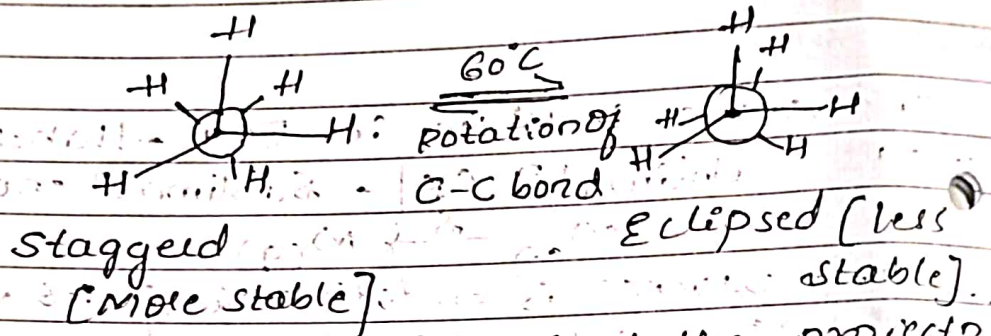 H
H H
H H
60°C
Rotation of
C-C bond
H H
H
H
H H
H H
Staggerd
[More stable].
Eclipsed [less
stable].